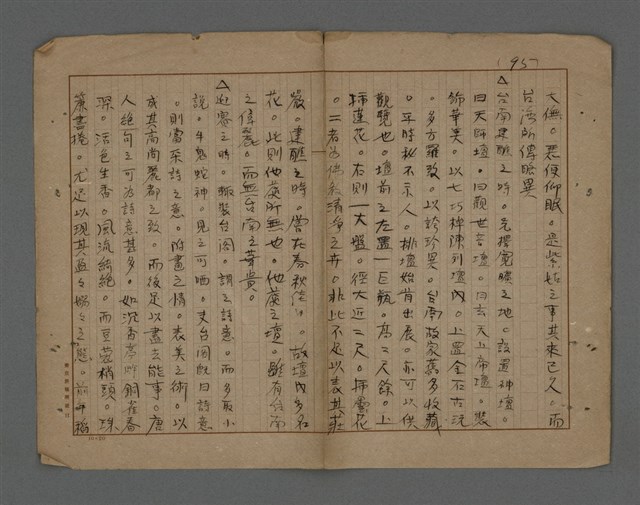 (95)
大儺。君便仰眠。是紫姑之事其來已久。而
台海所傳略異
△台南建醮之時。先擇寬曠之地。設置神壇。
曰天師壇。曰觀世音壇。曰玄天上帝壇。裝
飾華美。以七巧棹陳列壇內。上置金石古玩
。多方羅致。以誇珍異。台南故家舊多收藏
。平時秘不示人。排壇始肯出展。亦可以供
觀覽也。壇前之左置一巨瓶。高二尺餘。上
插蓮花。右則一大盤。徑大近二尺。插雪花
。二者為供清淨之卉。非此不足以表其莊
嚴。建醮之時。嘗在春秋佳日。故壇內多名
花。此則他處所無也。他處之壇。雖有台南
之偉麗。而無台南之華貴。
△迎賽之時。輒裝台閣。謂之詩意。而多取小
說。牛鬼蛇神。見之可哂。夫台閣既曰詩意
。則當采詩之意。附畫之情。表美之術。以
成其高尚麗都之致。而後足以盡其能事。唐
人絕句之可為詩意甚多。如沉香亭 銅雀春
深。活色生香。風流綺絕。而豆蔻梢頭。珠
簾盡捲。尤足以現其盈盈嫋嫋之態。前年稻